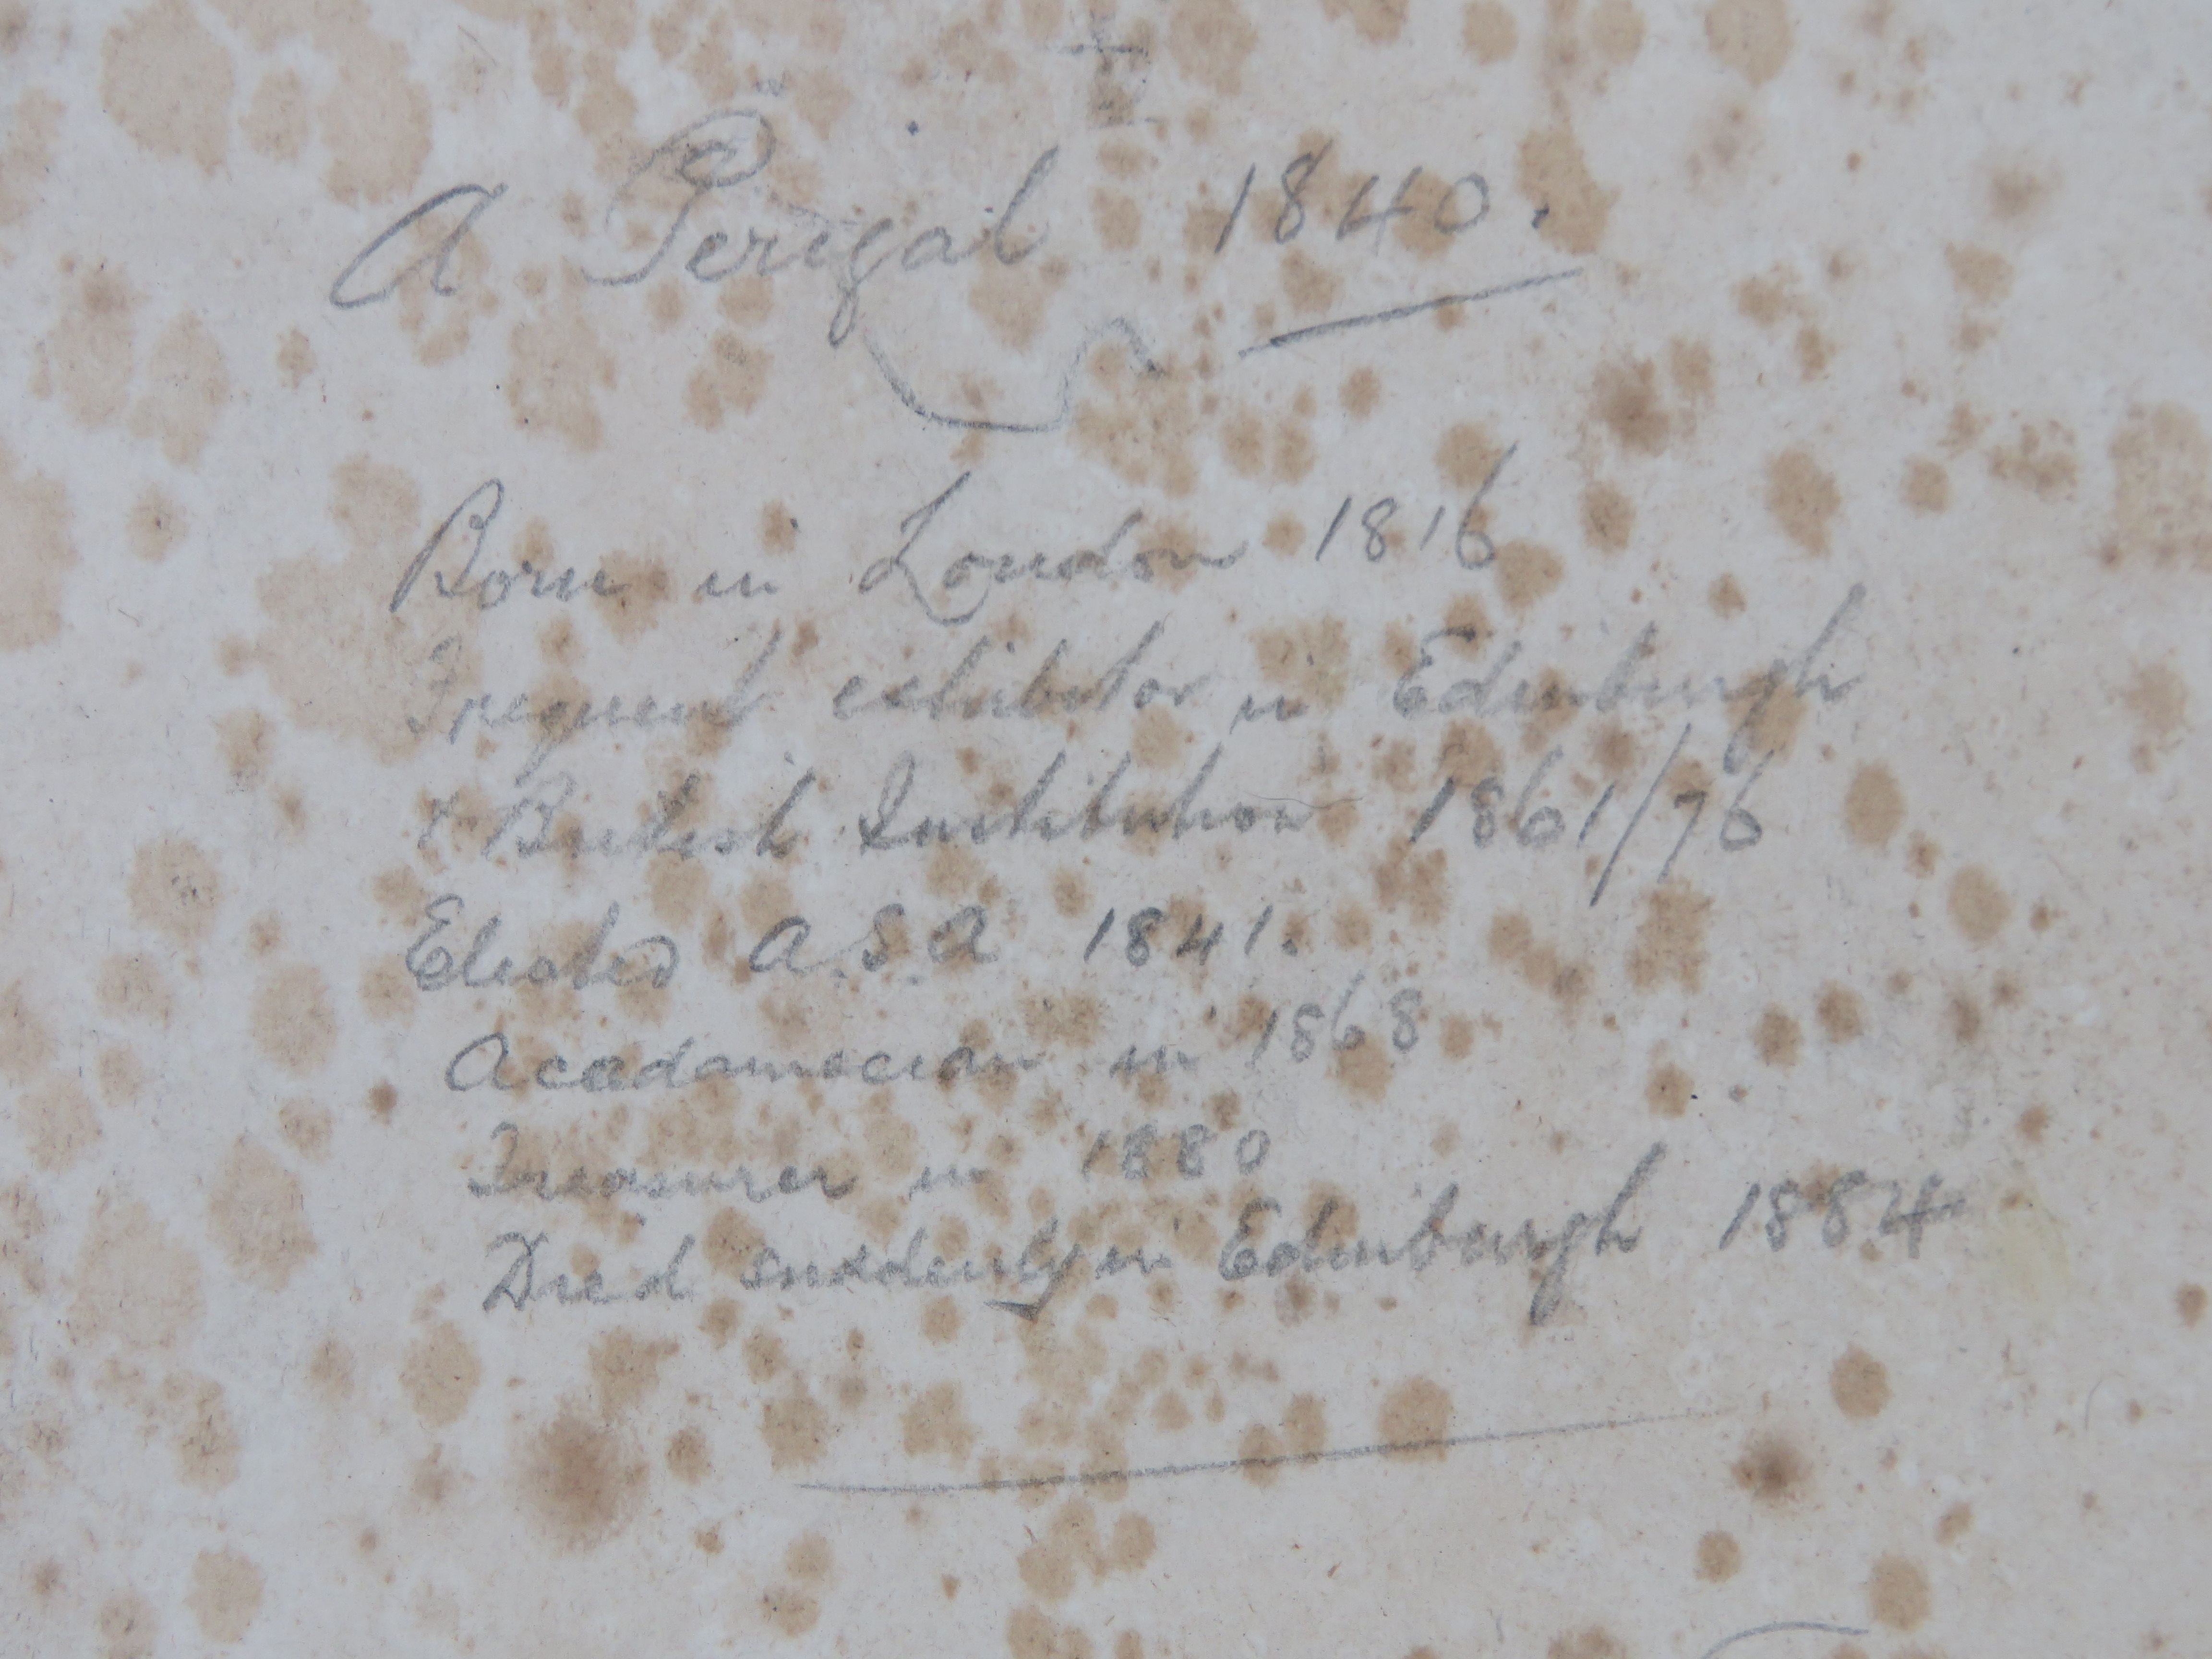 A Perigal 1840.
Born in London 1816
Frequent exhibitor in Edinburgh
& British Institution 1861/76
Elected A.S.A 1841.
Acadamecian in 1868
Treasurer in 1880
Died suddenly in Edinburgh 1884